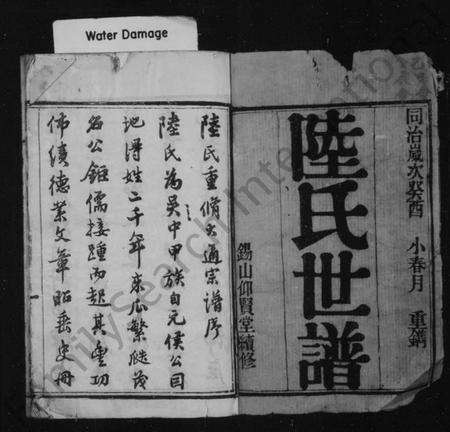 Water Damage
同治嵗次癸酉 小春月 重鐫
陸氏世譜
錫山仰賢堂續修
陸氏重脩大通宗譜序
陸氏為吳中甲族自元侯公因
地得姓二千年來瓜繁瓞茂
名公鉅儒接踵而起其豐功
偉績德業文章昭垂史冊
FamilySearch International